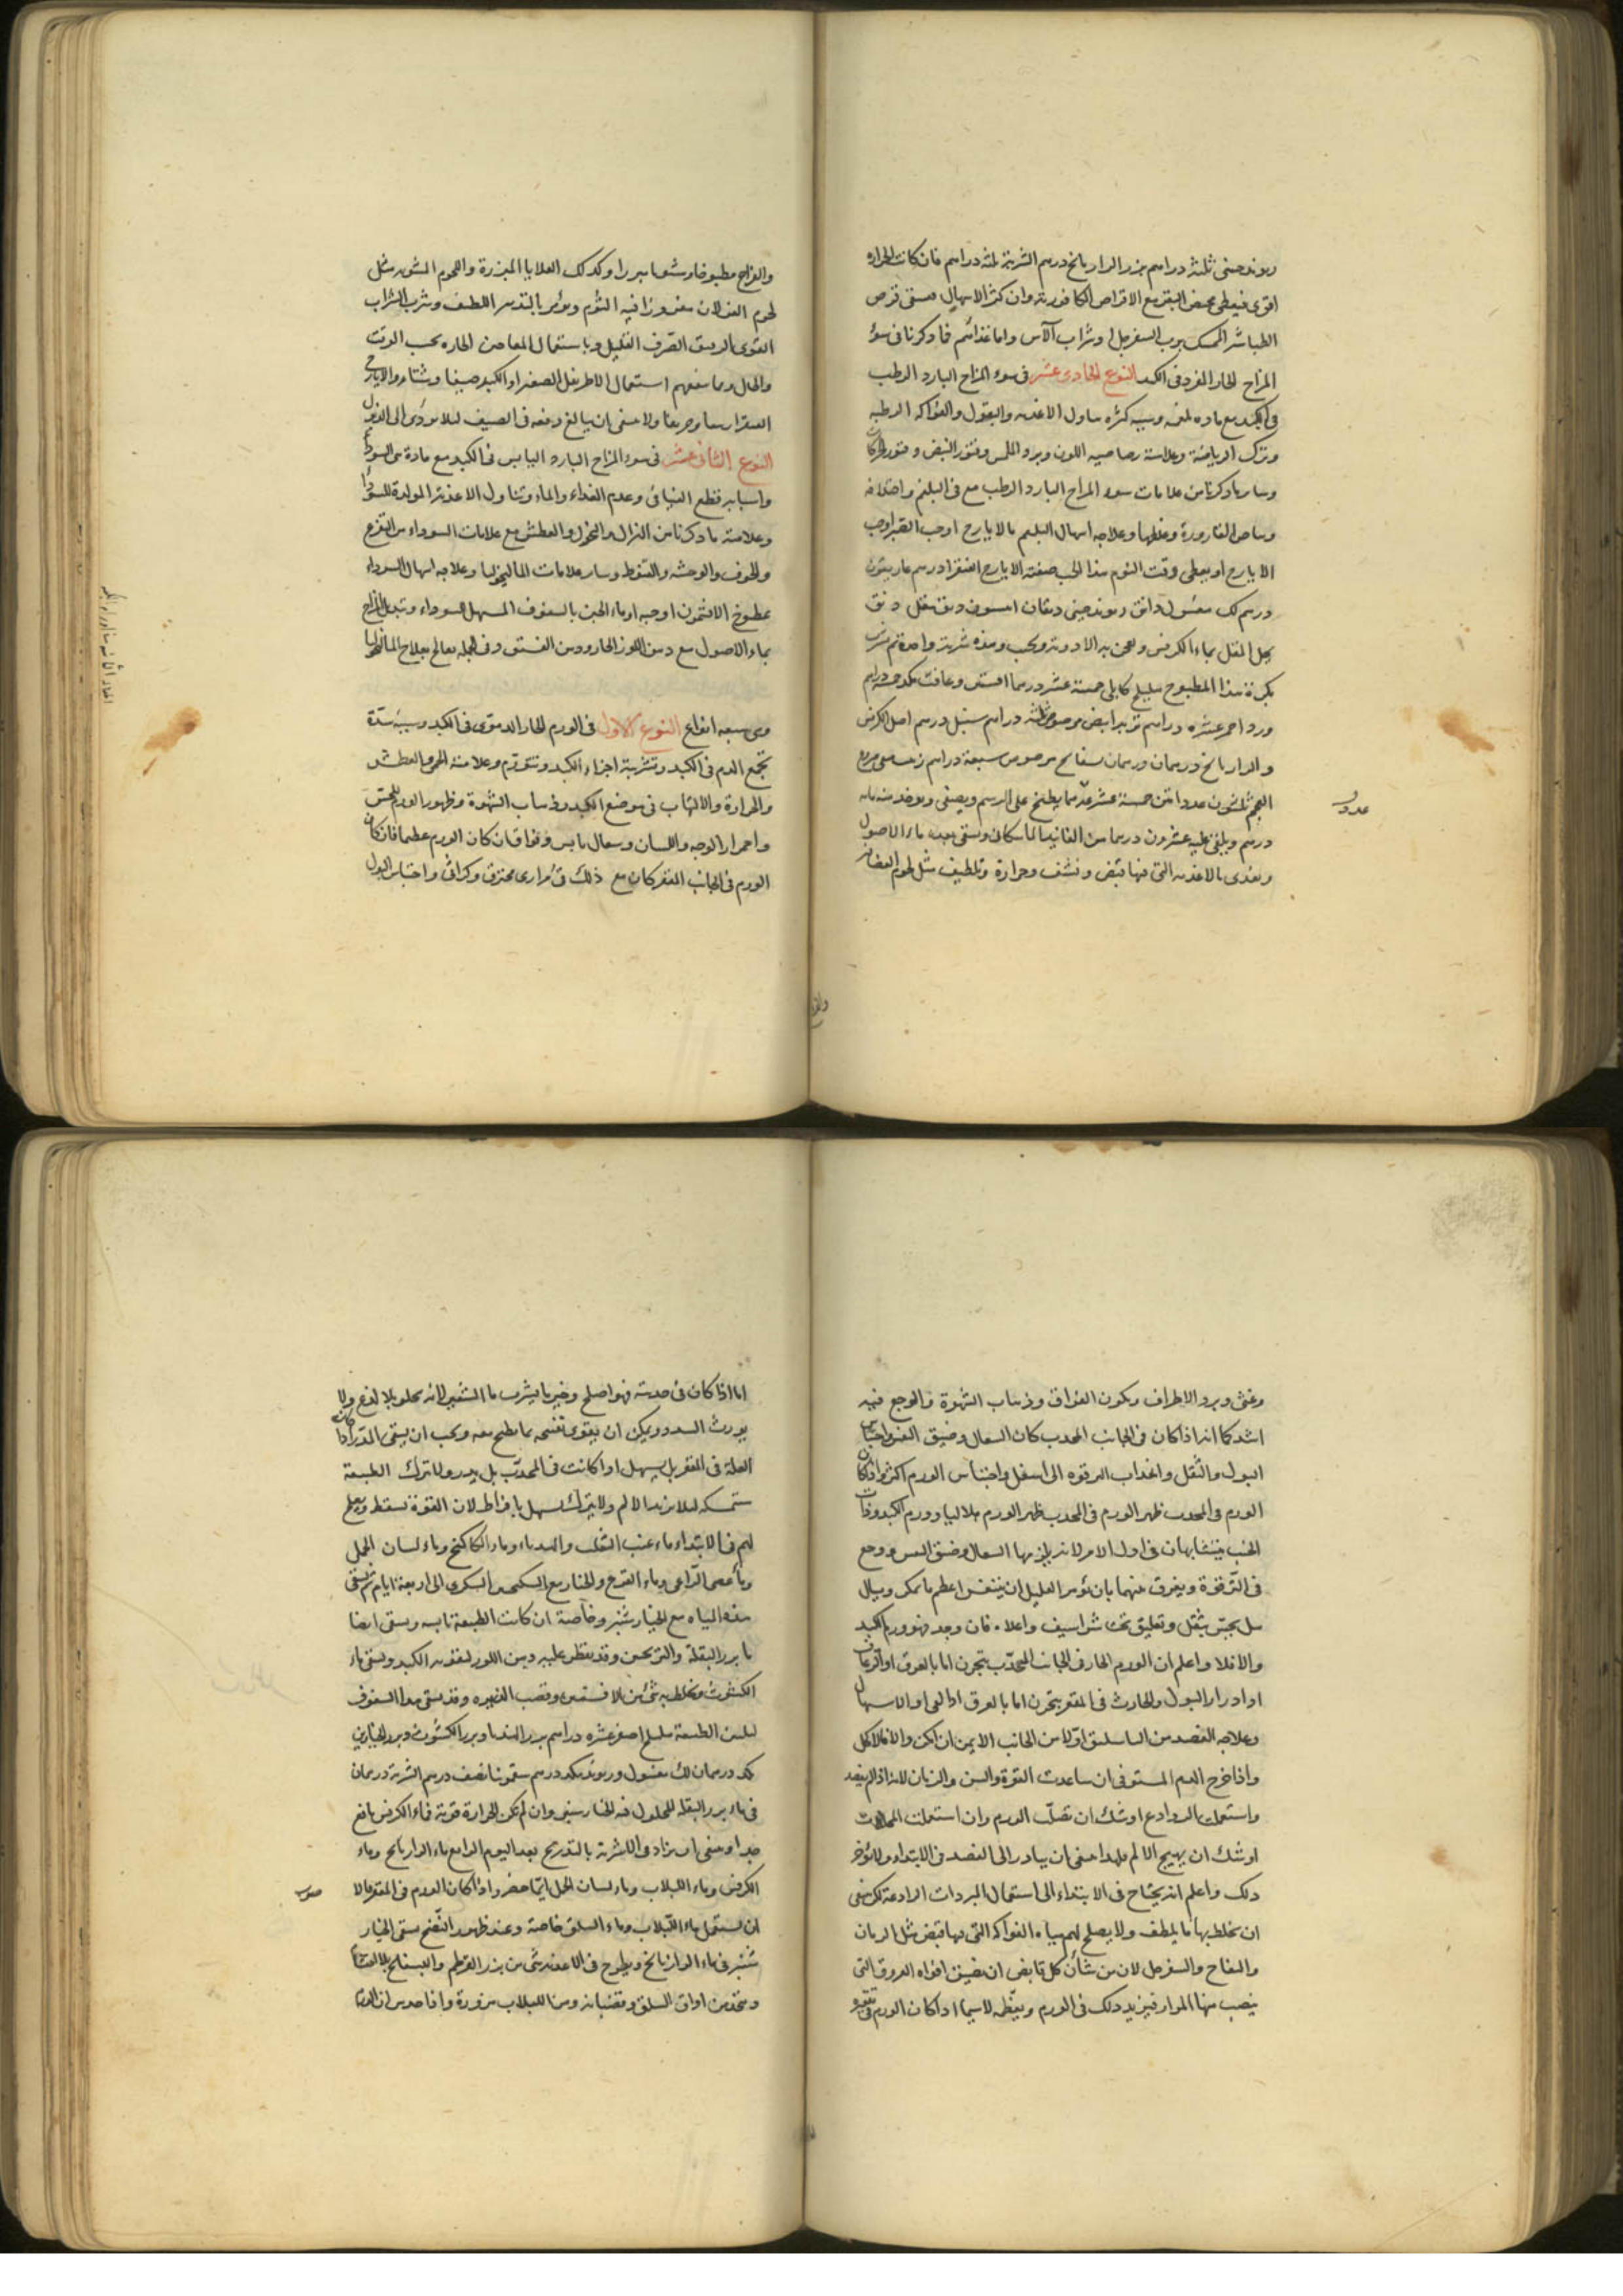 ريوند صينى ثلثة دراهم بزر الرازيانج درهم الشربة ثلثة دراهم فان كانت الحرارة
اقوى فيعطى مخيض البقر مع الاقراص الكافورية وان كثر الاسهال فيسقى قرص
الطباشير الممسك برب السفرجل او شراب الآس واما غذائهم فما ذكرنا فى سوء
المزاج الحار المفرد فى الكبد النوع الحادى عشر فى سوء المزاج البارد الرطب
فى الكبد مع مادة بلغمية وسببه كثرة تناول الاغذية والبقول والفواكه الرطبة
وترك الرياضة وعلامته رصاصية اللون وبرد الملمس وفتور النبض وفتور الحركات
وسائر ما ذكرنا من علامات سوء المزاج البارد الرطب مع فى البلغم واختلافه
وبياض القارورة وغلظها وعلاجه اسهال البلغم بالايارج او حب الصبر او حب
الايارج او يعطى وقت النوم هذا الحب صفته الايارج الفيقرا درهم غاريقون
درهم لك مغسول دانق ريوند صينى دانقان انيسون دانق مقل دانق
يحل المقل بماء الكرفس ويعجن به الادوية ويحبب وهذه شربة واحدة ثم يشرب
بكرة هذا المطبوخ هليلج كابلى خمسة عشر درهما افسنتين وغافت مكد خمسة دراهم
ورد احمر عشرة دراهم تربد ابيض مرضوض ثلثة دراهم سنبل درهم اصل الكرفس
والرازيانج درهمان درهمان بسفايج مرضوض سبعة دراهم زبيب منقى منزوع
العجم ثلثون عددا تين خمسة عشر عددا يطبخ على الرسم ويصفى ويؤخذ منه مائة
عددا
درهم ويلقى عليه عشرون درهما من الفانيد الماسكانى ويسقى بعده ماء الاصول
ويغذى بالاغذية التى فيها قبض ونشف وحرارة وتلطيف مثل لحوم العصافير
والفراج مطبوخا ومشويا مبزرا وكذلك القلايا المبزرة واللحوم المشوية مثل
لحوم الغزلان مغروزا فيه الثوم ويؤمر بالتدبير اللطيف وشرب الشراب
القوى الريق الصرف القليل وباستعمال المعاجين الحارة بحسب الوقت
والحال ومما ينفعهم استعمال الاطريفل الصغير او الكبير صيفا وشتاء والايارج
الفيقرا ربيعا وخريفا ولا ينبغى ان يبالغ فى دفعه فى الصيف لئلا يؤدى الى الذبول
النوع الثانى عشر فى سوء المزاج البارد اليابس فى الكبد مع مادة من السوداء
واسبابه قطع الغذاء وعدم الغذاء والماء وتناول الاغذية المولدة للسوداء
وعلامته ما ذكرنا من الهزال والنحول والعطش مع علامات السوداء من التفزع
والخوف والوحشة والقنوط وسائر علامات الماليخوليا وعلاجه اسهال السوداء
بمطبوخ الافتيمون او حبه او ماء الجبن بالسفوف المسهل للسوداء وتبديل المزاج
بماء الاصول مع دهن اللوز الحار ودهن الفستق وفى الجملة يعالج بعلاج الماليخوليا
وهى سبعة انواع النوع الاول فى الورم الحار الدموى فى الكبد وسببه سدة
تجمع الدم فى الكبد وتشربه اجزاء الكبد وتتورم وعلامته الحمى والعطش
والحرارة والالتهاب فى موضع الكبد وذهاب الشهوة وظهور الورم للحس
واحمرار الوجه واللسان وسعال يابس وفواق ان كان الورم عظيما فان كان
الورم فى الجانب المقعر كان مع ذلك قئ مرارى محترق وكراثى واحتباس البول
وغثى وبرد الاطراف ويكون الفواق وذهاب الشهوة والوجع فيه
اشد كما انه اذا كان فى الجانب المحدب كان السعال وضيق النفس واحتباس
البول والثقل وانجذاب الترقوة الى اسفل واحتباس الورم اكثر واذا كان
الورم فى المحدب ظهر الورم فى المحدب ظهر الورم هلاليا وورم الكبد وذات
الجنب يتشابهان فى اول الامر لانه يلزمهما السعال وضيق النفس ووجع
فى الترقوة ويفرق بينهما بان يؤمر العليل ان يتنفس اعظم ما يمكن ويسأل
هل يحس بثقل وتعليق تحت شراسيف واعلاه فان وجد فهو ورم الكبد
والا فلا واعلم ان الورم الحار فى الجانب المحدب يبحرن اما بالعرق او الرعاف
او ادرار البول والحادث فى المقعر يبحرن اما بالعرق او القئ او الاسهال
وعلاجه الفصد من الباسليق اولا من الجانب الايمن ان امكن والا فالاكحل
واذا خرج الدم المستوفى ان ساعدت القوة والسن والزمان لانه اذا لم يفصد
واستعملت الروادع اوشك ان تصلب الورم وان استعملت المحللات
اوشك ان يهيج الالم فلهذا ينبغى ان يبادر الى الفصد فى الابتداء ولا يؤخر
ذلك واعلم انه يحتاج فى الابتداء الى استعمال المبردات الرادعة لكن ينبغى
ان يخلط بها ما يلطف ولا يصلح لهم مياه الفواكه التى بها قبض مثل الرمان
والتفاح والسفرجل لان من شأن كل قابض ان يضيق افواه العروق التى
ينصب منها المرار فيزيد ذلك فى الورم ويعظمه لا سيما اذا كان الورم فى تقعيره
اما اذا كان فى حدبته فهو اصلح وخير ما يشرب ماء الشعير لانه يجلو بلا لذع ولا
يورث السدد ويمكن ان يقوى تفتيحه بما طبخ معه ويجب ان يسقى المدر اذا كان
العلة فى المقعر بل يسهل او اذا كانت فى المحدب بل يدر ولا تترك الطبيعة
مستمسكة لئلا يزيد الالم ولا يترك يسهل بافراط لان القوة تسقط ويصلح
لهم فى الابتداء ماء عنب الثعلب والهندباء وماء الكاكنج وماء لسان الحمل
وماء عصى الراعى وماء القرع والخيار مع السكنجبين السكرى الى اربعة ايام ثم يسقى
هذه المياه مع الخيار شنبر وخاصة ان كانت الطبيعة يابسة ويسقى ايضا
ماء بزر البقلة والترنجبين وقد يقطر عليه دهن اللوز لتقوية الكبد ويسقى ماء
الكشوث ويخلط به شئ من الافسنتين وقصب الذريرة وقد يسقى هذا السفوف
لتليين الطبيعة هليلج اصفر عشرة دراهم بزر الهندباء وبزر الكشوث وبزر الخيارين
مكد درهمان لك مغسول وريوند مكد درهم سقمونيا نصف درهم الشربة درهمان
فى ماء بزر البقلة المحلول فيه الخيار شنبر وان لم تكن الحرارة قوية فماء الكرفس نافع
جدا وينبغى ان يزاد فى الاشربة بالتدريج بعد اليوم الرابع ماء الرازيانج وماء
الكرفس وماء اللبلاب وماء لسان الحمل ايها حضر واذا كان الورم فى المقعر فالاولى
صوب
ان يستعمل ماء اللبلاب وماء السلق خاصة وعند ظهور النضج يسقى الخيار
شنبر فى ماء الرازيانج ويطرح فى الاغذية شئ من بزر القرطم والبسفايج
ويتخذ من اوراق السلق وقضبانه ومن اللبلاب مزورة واذا حدس ان المادة